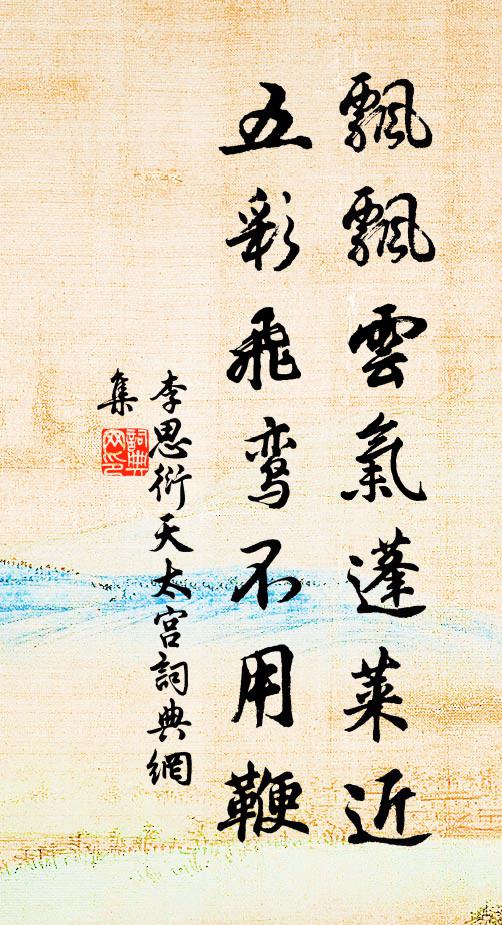 飄飄雲氣蓬萊近
五彩飛鸾不用鞭
李思衍天太宮詞典網
集
詞典網印